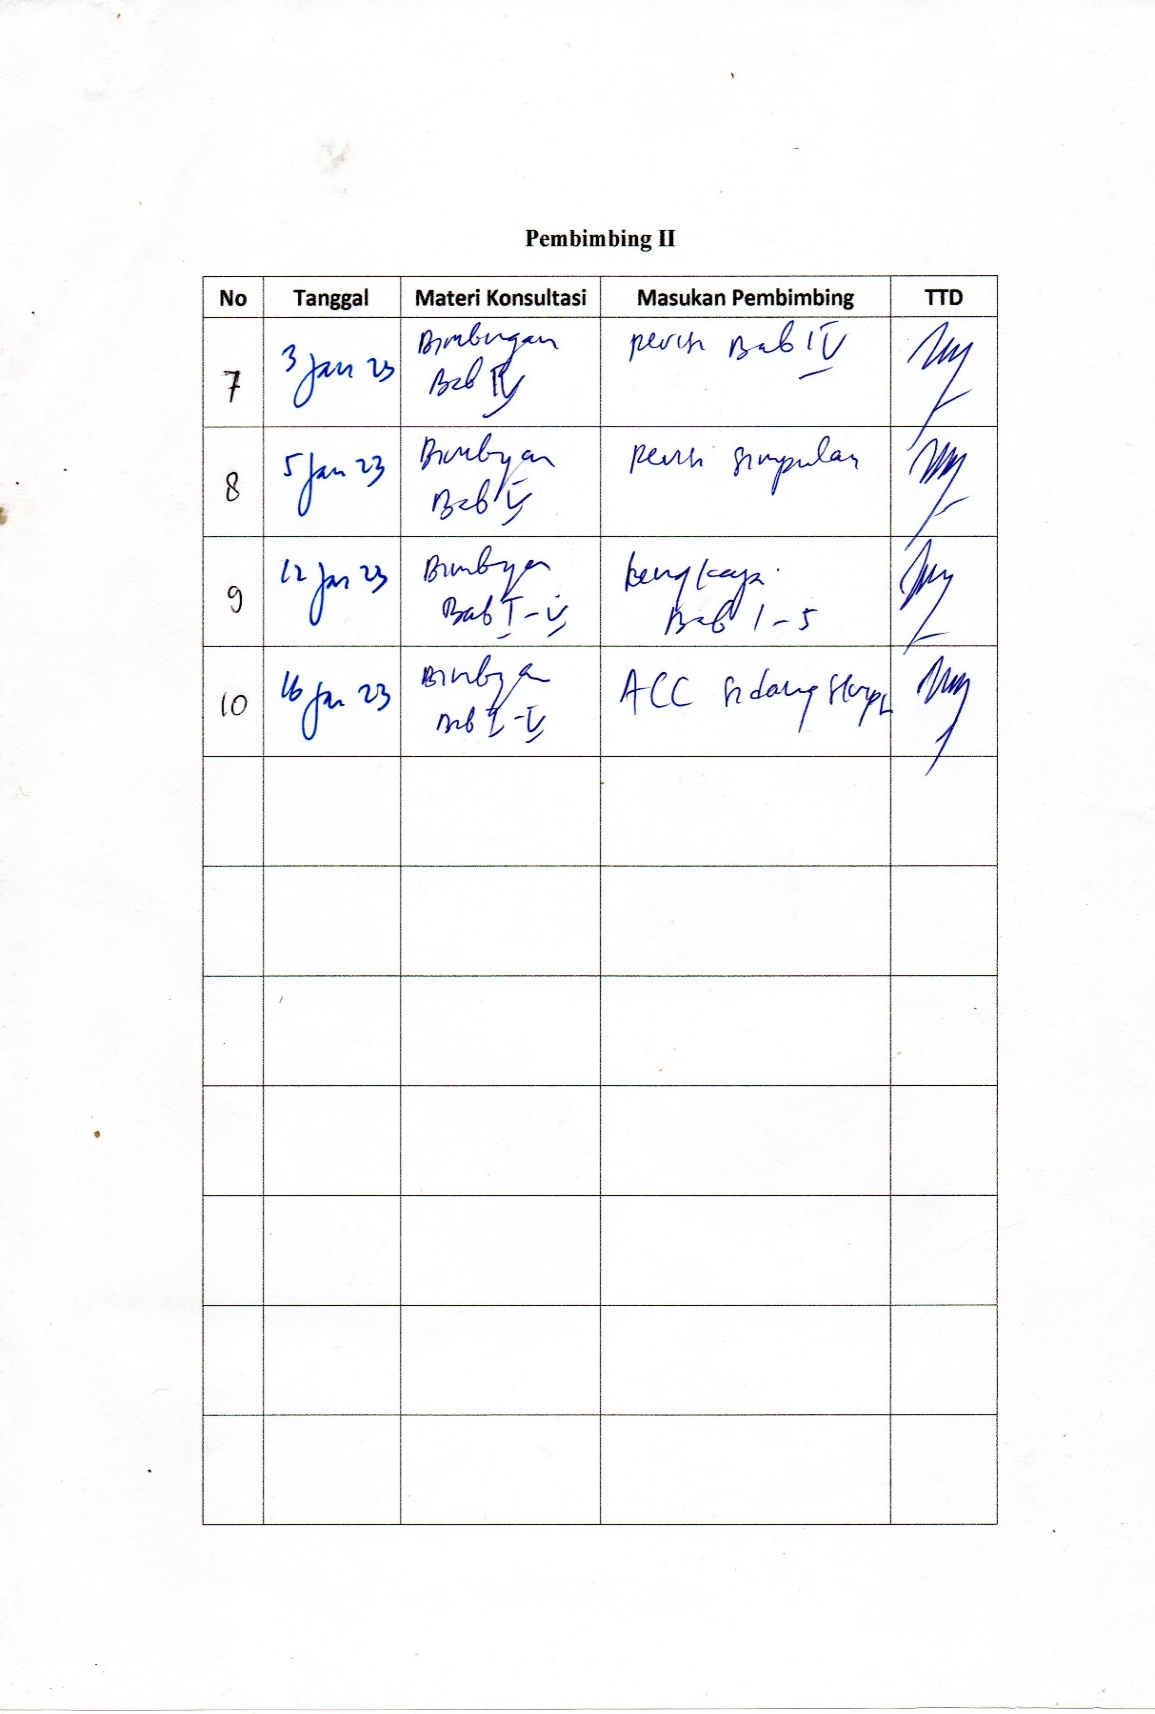 Pembimbing II
No Tanggal Materi Konsultasi Masukan Pembimbing TTD
7 3 Jan 23 Bimbingan Bab IV revisi Bab IV
8 5 Jan 23 Bimbingan Bab V revisi simpulan
9 12 Jan 23 Bimbingan Bab I - V Lengkapi Bab 1 - 5
10 16 Jan 23 Bimbingan Bab I - V ACC sidang skripsi